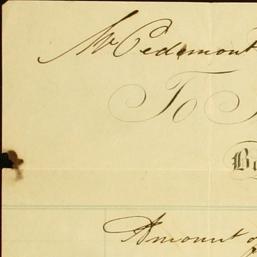 Mr Pedemont
To
Amount of